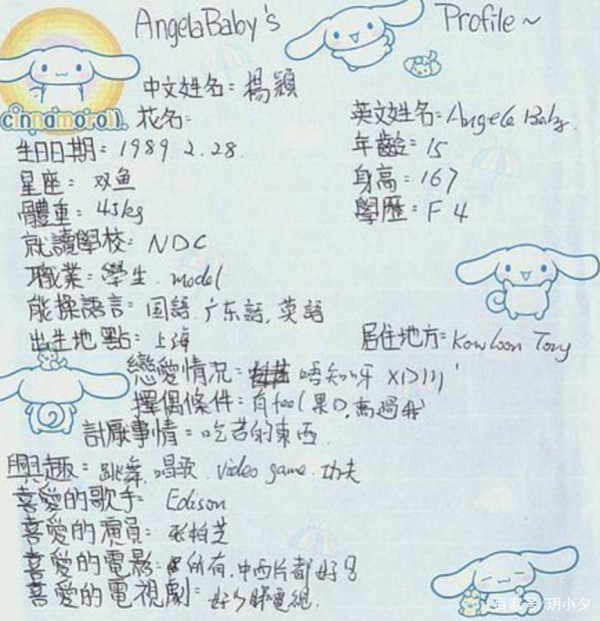 AngelaBaby's Profile ~
中文姓名: 楊穎
cinnamoroll
花名: 英文姓名: Angela Baby.
生日日期: 1989.2.28. 年齡: 15
星座: 双鱼 身高: 167
體重: 45kg 學歷: F 4
就讀學校: NDC
職業: 學生. model
能操語言: 国語. 广东話. 英語
出生地點: 上海 居住地方: Kowloon Tong
戀愛情况: 唔知呀 XD
擇偶條件: 有feel果D, 高過我
討厭事情: 吃苦的東西.
興趣: 跳舞. 唱歌. video game. 功夫
喜愛的歌手: Edison
喜愛的演員: 张柏芝
喜愛的電影: 所有. 中西片都好
喜愛的電視劇:
百家号/玥小夕